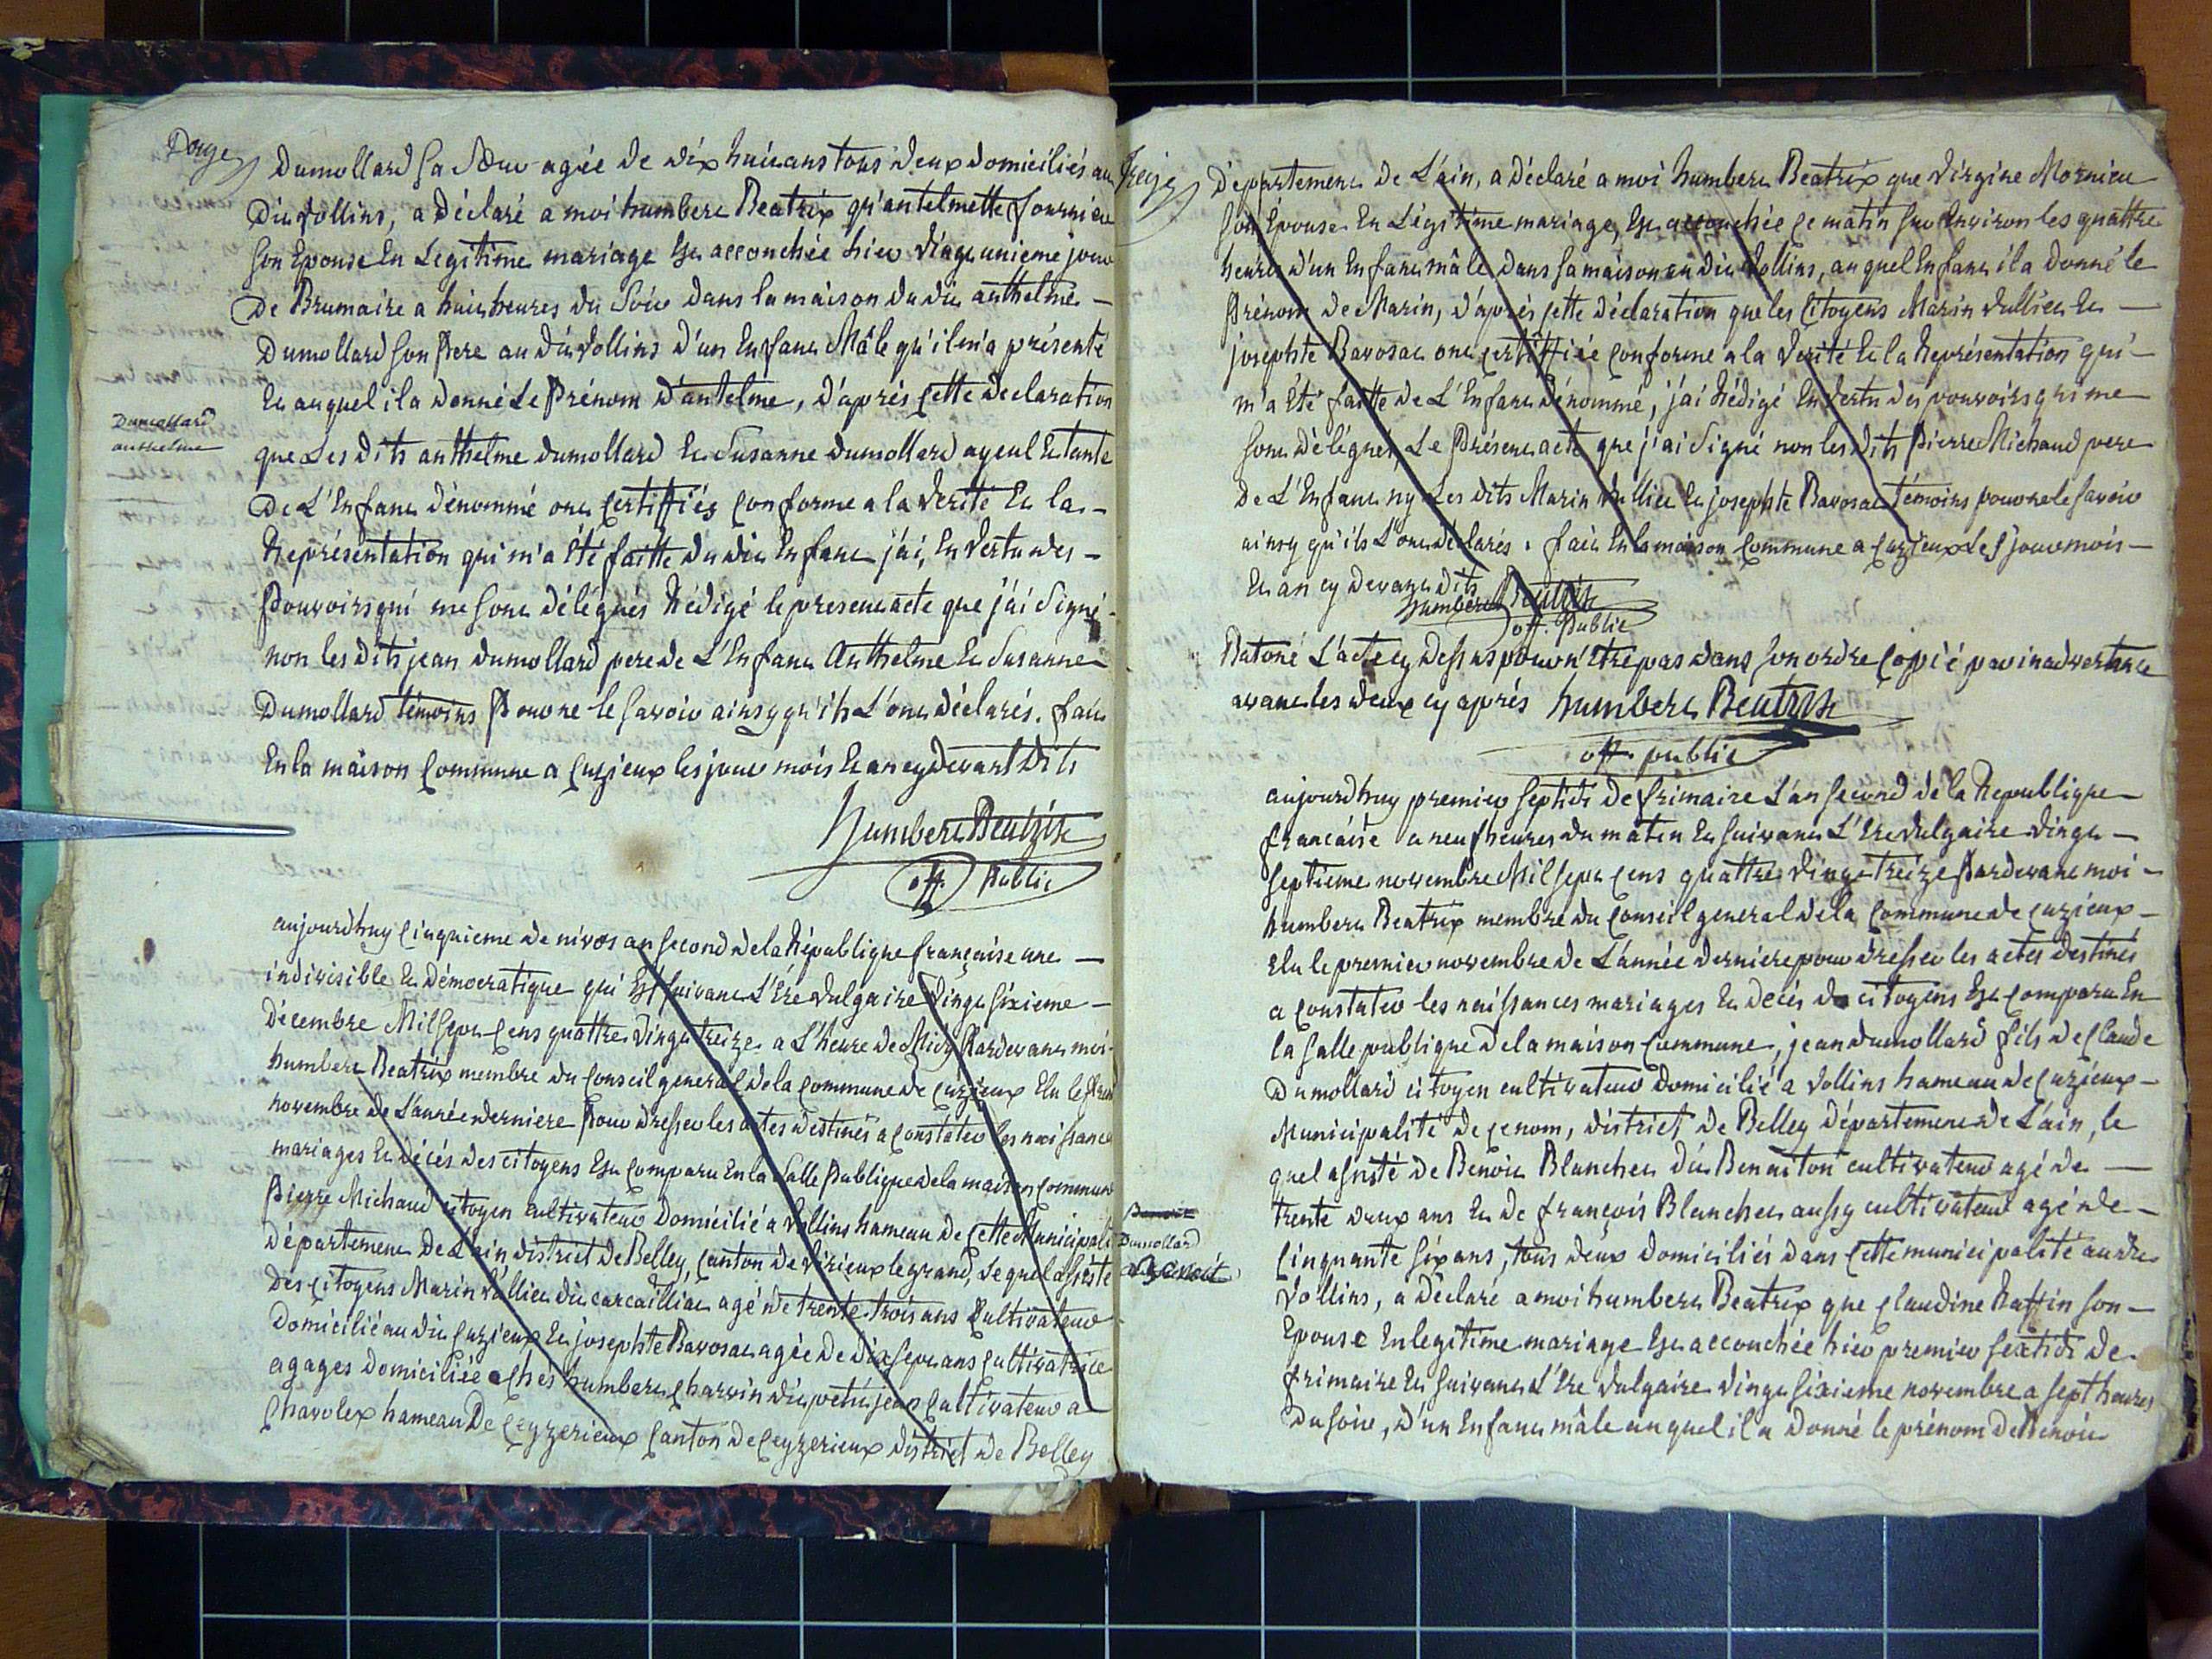 Douze
Dumollard sa Sœur agée de dix huit ans tous deux domiciliés au
Dit Vollins, a déclaré a moi humbert Beatrix qu'antelmette fournier
son Epouse En Legitime mariage Est accouchée hier vingt unieme jour
De Brumaire a huit heures du Soir dans la maison du dit anthelme
Dumollard son Pere au dit Vollins d'un Enfant Mâle qu'il m'a présenté
Et auquel il a donné Le Prénom d'antelme, d'aprés cette declaration
Dumollard
anthelme
que Les dits anthelme dumollard Et Susanne dumollard ayeul Et tante
De L'Enfant dénommé ont certiffiés conforme a la Verité Et la
Représentation qui m'a Eté faitte du dit Enfant j'ai, En Vertu des
Pouvoirs qui me sont délégués Rédigé le present acte que j'ai signé
non les dits jean dumollard pere de L'Enfant Anthelme Et Susanne
Dumollard témoins Pour ne le savoir ainsy qu'ils L'ont déclarés. fait
En la maison commune a cuzieux les jour mois Et an cy devant dits
humbert Beatrix
off. Public
aujourdhuy cinquieme de nivos an second de la République française une
indivisible Et démocratique qui Est suivant L'Ere vulgaire vingt sixieme
décembre Mil sept cens quattre vingt treize a L'heure de Midy Pardevant moi
humbert Beatrix membre du conseil general de la commune de cuzieux Elu le
novembre de L'année derniere Pour dresser les actes destinés a constater les naissances
mariages Et décés des citoyens Est comparu En la salle Publique de la maison commune
Pierre Michaud citoyen cultivateur Domicilié a Vollins hameau de cette Municipali
département de L'ain district de Belley, canton de Virieux le grand, Lequel assisté
des citoyens Marin Vullier dit carcaillier agé de trente trois ans cultivateur
Domicilié au dit cuzieux Et josephte Bavosat agée de dix sept ans cultivatrice
a gages domiciliée chés humbert charvin dit petit jean cultivateur a
chavolex hameau De ceyzerieux canton de ceyzerieux district de Belley
Treize
département de L'ain, a déclaré a moi humbert Beatrix que Virgine Mornieu
son Epouse En Légitime mariage, Est accouchée ce matin sur Environ les quattre
heures d'un Enfant mâle dans sa maison au dit Vollins, auquel Enfant il a donné le
Prénom de Marin, d'aprés cette déclaration que les citoyens Marin Vullier Et
josephte Bavosat ont certiffiée conforme a la Verité Et la Représentation qui
m'a Eté faitte de L'Enfant dénommé, j'ai Rédigé En Vertu des pouvoirs qui me
sont délégués, Le Présent acte que j'ai signé non les dits Pierre Michaud pere
de L'Enfant ny Les dits Marin Vullier Et josephte Bavosat témoins pour ne le savoir
ainsy qu'ils L'ont déclarés. fait En la maison commune a cuzieux Les jour mois
Et an cy devant dits
humbert Beatrix
off. Public
Batoné L'acte cy dessus pour n'être pas dans son ordre copié par inadvertance
avant les deux cy aprés humbert Beatrix
off. public
aujourdhuy premier septidi de frimaire L'an second de la Republique
francaise a neuf heures du matin Et suivant L'Ere vulgaire vingt
septieme novembre Mil sept cens quattre vingt treize Pardevant moi
humbert Beatrix membre du conseil general de la commune de cuzieux
Elu le premier novembre de L'année derniere pour dresser les actes destinés
a constater les naissances mariages Et décés de citoyens Est comparu En
la salle publique de la maison commune, jean dumollard fils de claude
Dumollard citoyen cultivateur domicilié a Vollins hameau de cuzieux
Municipalité de ce nom, district de Belley département de L'ain, le
quel assisté de Benoit Blanchet dit Benniton cultivateur agé de
trente deux ans Et de françois Blanchet aussy cultivateur agé de
Benoit
Dumollard
Benoit
cinquante six ans, tous deux domiciliés dans cette municipalité au dit
Vollins, a déclaré a moi humbert Beatrix que claudine Raffin son
Epouse En legitime mariage Est accouchée hier premier sextidi de
frimaire Et suivant L'Ere vulgaire vingt sixieme novembre a sept heures
du soir, d'un Enfant mâle auquel il a donné le prénom de Benoit